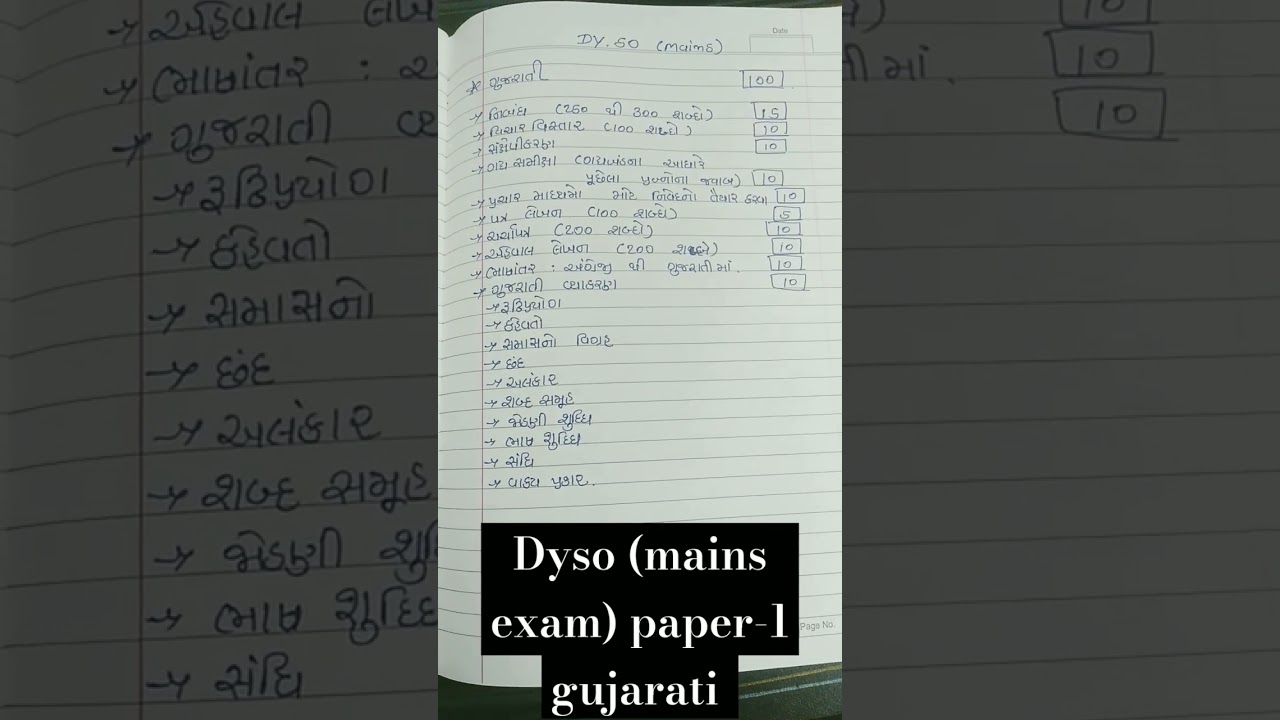 Date
DY.SO (mains)
* ગુજરાતી 100
→ નિબંધ (250 થી 300 શબ્દો) 15
→ વિચાર વિસ્તાર (100 શબ્દો) 10
→ સંક્ષેપીકરણ 10
→ ગદ્ય સમીક્ષા (ગદ્યખંડના આધારે
પૂછેલા પ્રશ્નોના જવાબ) 10
→ પ્રચાર માધ્યમો માટે નિવેદનો તૈયાર કરવા 10
→ પત્ર લેખન (100 શબ્દો) 5
→ ચર્ચાપત્ર (200 શબ્દો) 10
→ અહેવાલ લેખન (200 શબ્દો) 10
→ ભાષાંતર : અંગ્રેજી થી ગુજરાતીમાં. 10
→ ગુજરાતી વ્યાકરણ 10
→ રૂઢિપ્રયોગ
→ કહેવતો
→ સમાસનો વિગ્રહ
→ છંદ
→ અલંકાર
→ શબ્દ સમૂહ
→ જોડણી શુદ્ધિ
→ ભાષા શુદ્ધિ
→ સંધિ
→ વાક્ય પ્રકાર.
Dyso (mains
exam) paper-1
gujarati
Page No.